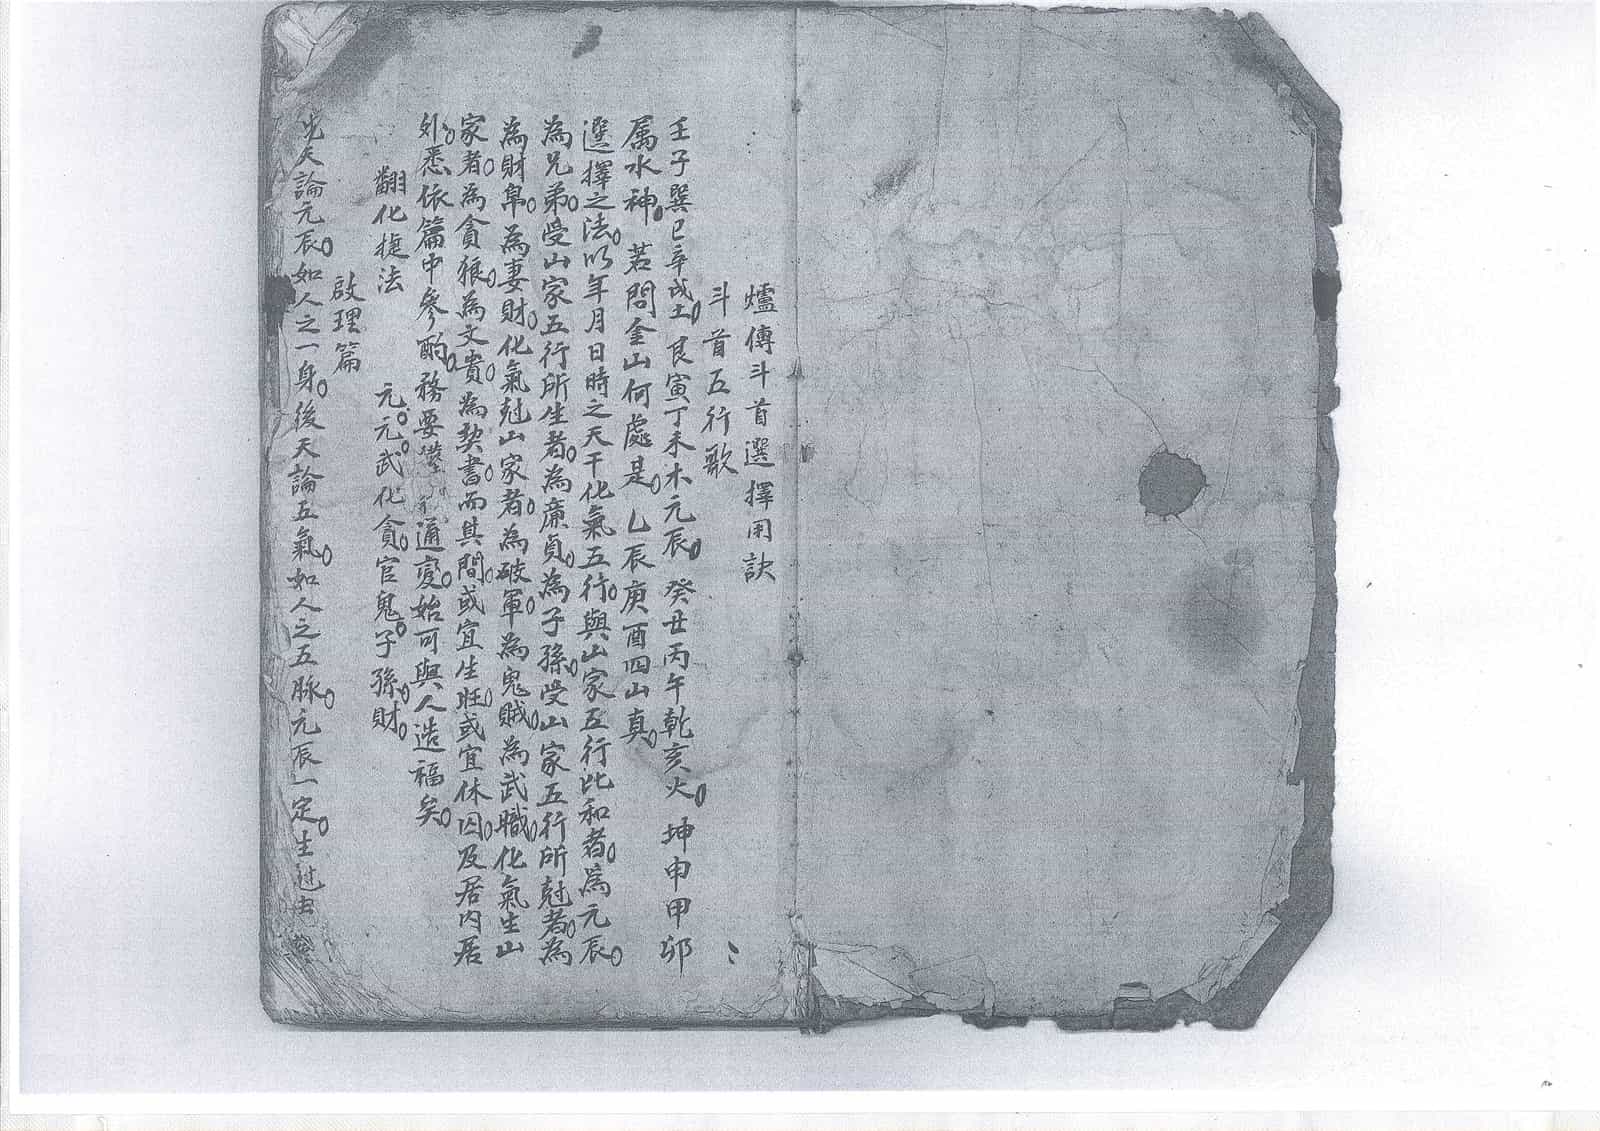 爐傳斗首選擇用訣
斗首五行歌
壬子巽巳辛戌土。艮寅丁未木元辰。癸丑丙午乾亥火。坤申甲卯
属水神。若問金山何處是。乙辰庚酉四山真。
選擇之法。以年月日時之天干化氣五行。與山家五行比和者。為元辰。
為兄弟。受山家五行所生者。為廉貞。為子孫。受山家五行所尅者。為
為財帛。為妻財。化氣尅山家者。為破軍。為鬼賊。為武職。化氣生山
家者。為貪狼。為文貴。為契書。而其間。或宜生旺。或宜休囚。及居内居
外。悉依篇中參酌。務要 通變。始可與人造福矣。
翻化捷法 元。元。武化貪。官鬼。子孫。財。
啟理篇
先天論元辰。如人之一身。後天論五氣。如人之五脉。元辰一定。生